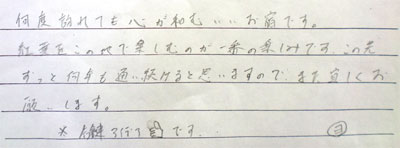 何度訪れても心が和むいいお宿です。
紅葉をこの地で楽しむのが一番の楽しみです。この先
ずっと何年も通い続けると思いますので、また宜しくお
願いします。
※ です。